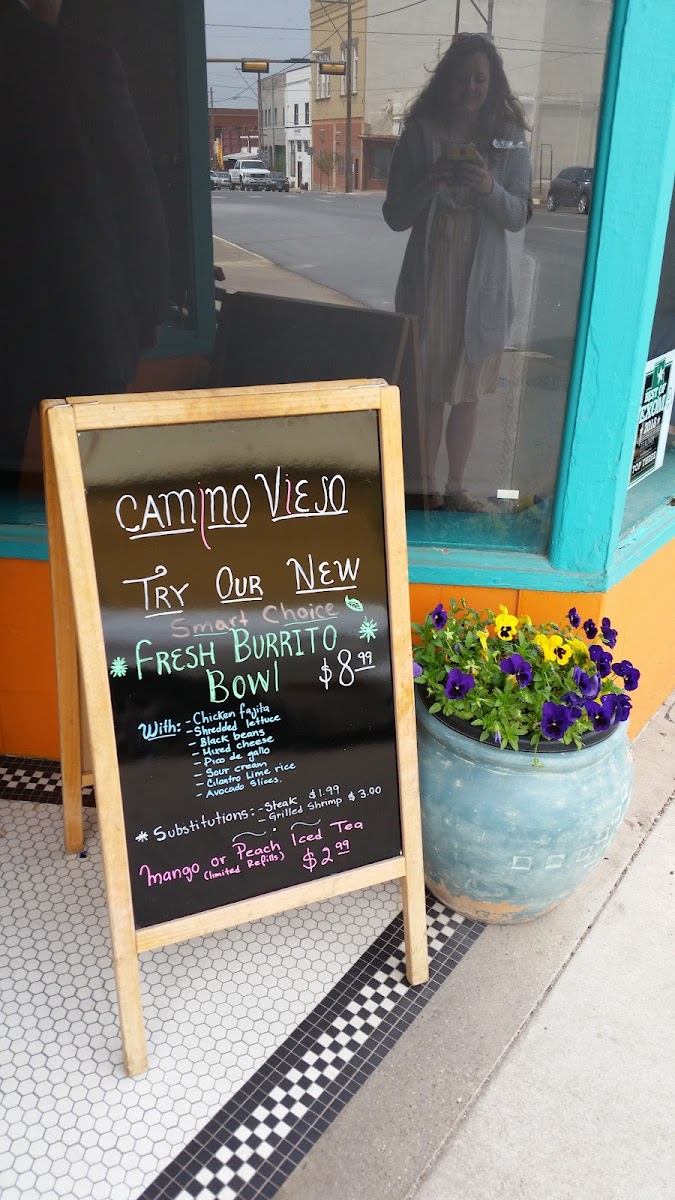 CAMINO VIEJO
TRY OUR NEW
Smart Choice
FRESH BURRITO
BOWl
$8.99
With: - Chicken fajita
- Shredded lettuce
- Black beans
- Mixed cheese
- Pico de gallo
- Sour cream
- Cilantro Lime rice
- Avocado Slices.
* Substitutions: - Steak $1.99
- Grilled Shrimp $3.00
Mango or Peach Iced Tea
(limited Refills) $2.99
BEST OF
TOP THREE